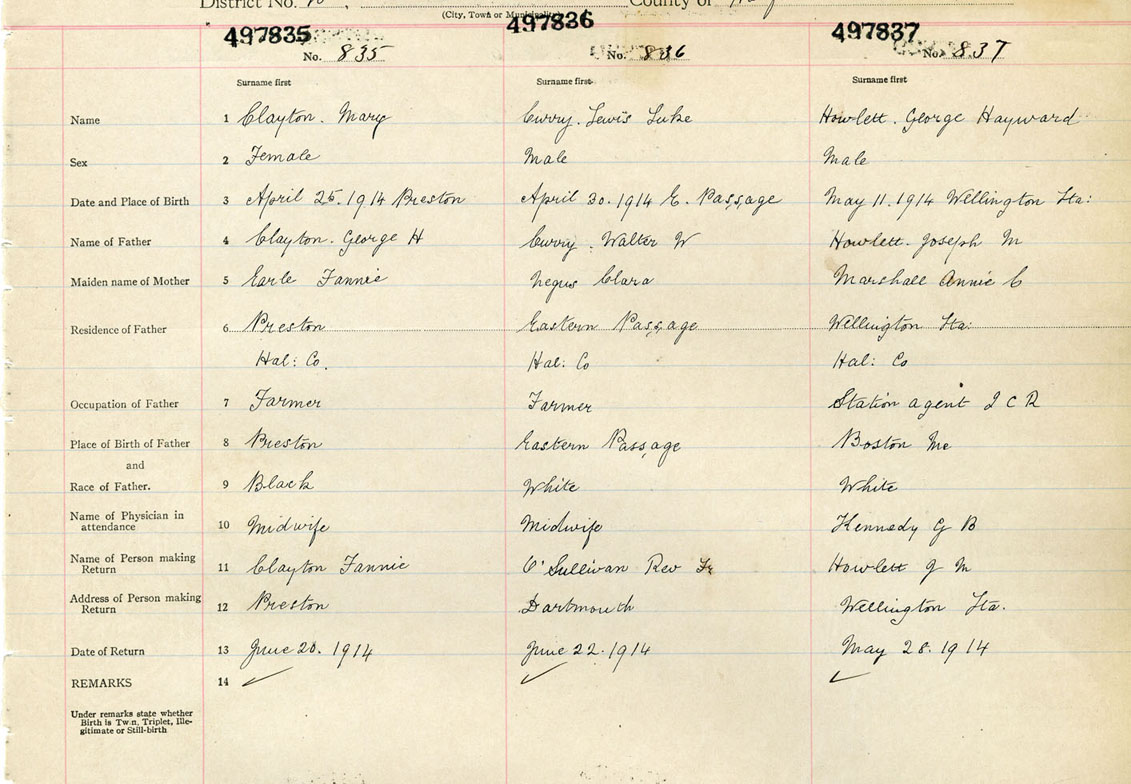 District No. County of
(City, Town or Municipality)
497835 497836 497837
No. 835 No. 836 No. 837
Surname first Surname first Surname first
Name 1 Clayton. Mary Curry. Lewis Luke Howlett. George Hayward
Sex 2 Female Male Male
Date and Place of Birth 3 April 25. 1914 Preston April 30. 1914 E. Passage May 11. 1914 Wellington Sta:
Name of Father 4 Clayton. George H Curry. Walter W Howlett. Joseph M
Maiden name of Mother 5 Earle Fannie Negus Clara Marshall Annie C
Residence of Father 6 Preston Eastern Passage Wellington Sta:
Hal: Co. Hal: Co Hal: Co
Occupation of Father 7 Farmer Farmer Station agent I C R
Place of Birth of Father 8 Preston Eastern Passage Boston
and
Race of Father. 9 Black White White
Name of Physician in
attendance 10 Midwife Midwife Kennedy G B
Name of Person making
Return 11 Clayton Fannie O'Sullivan Rev Fr Howlett J M
Address of Person making
Return 12 Preston Dartmouth Wellington Sta.
Date of Return 13 June 20. 1914 June 22. 1914 May 28. 1914
REMARKS 14
Under remarks state whether
Birth is Twin, Triplet, Ille-
gitimate or Still-birth